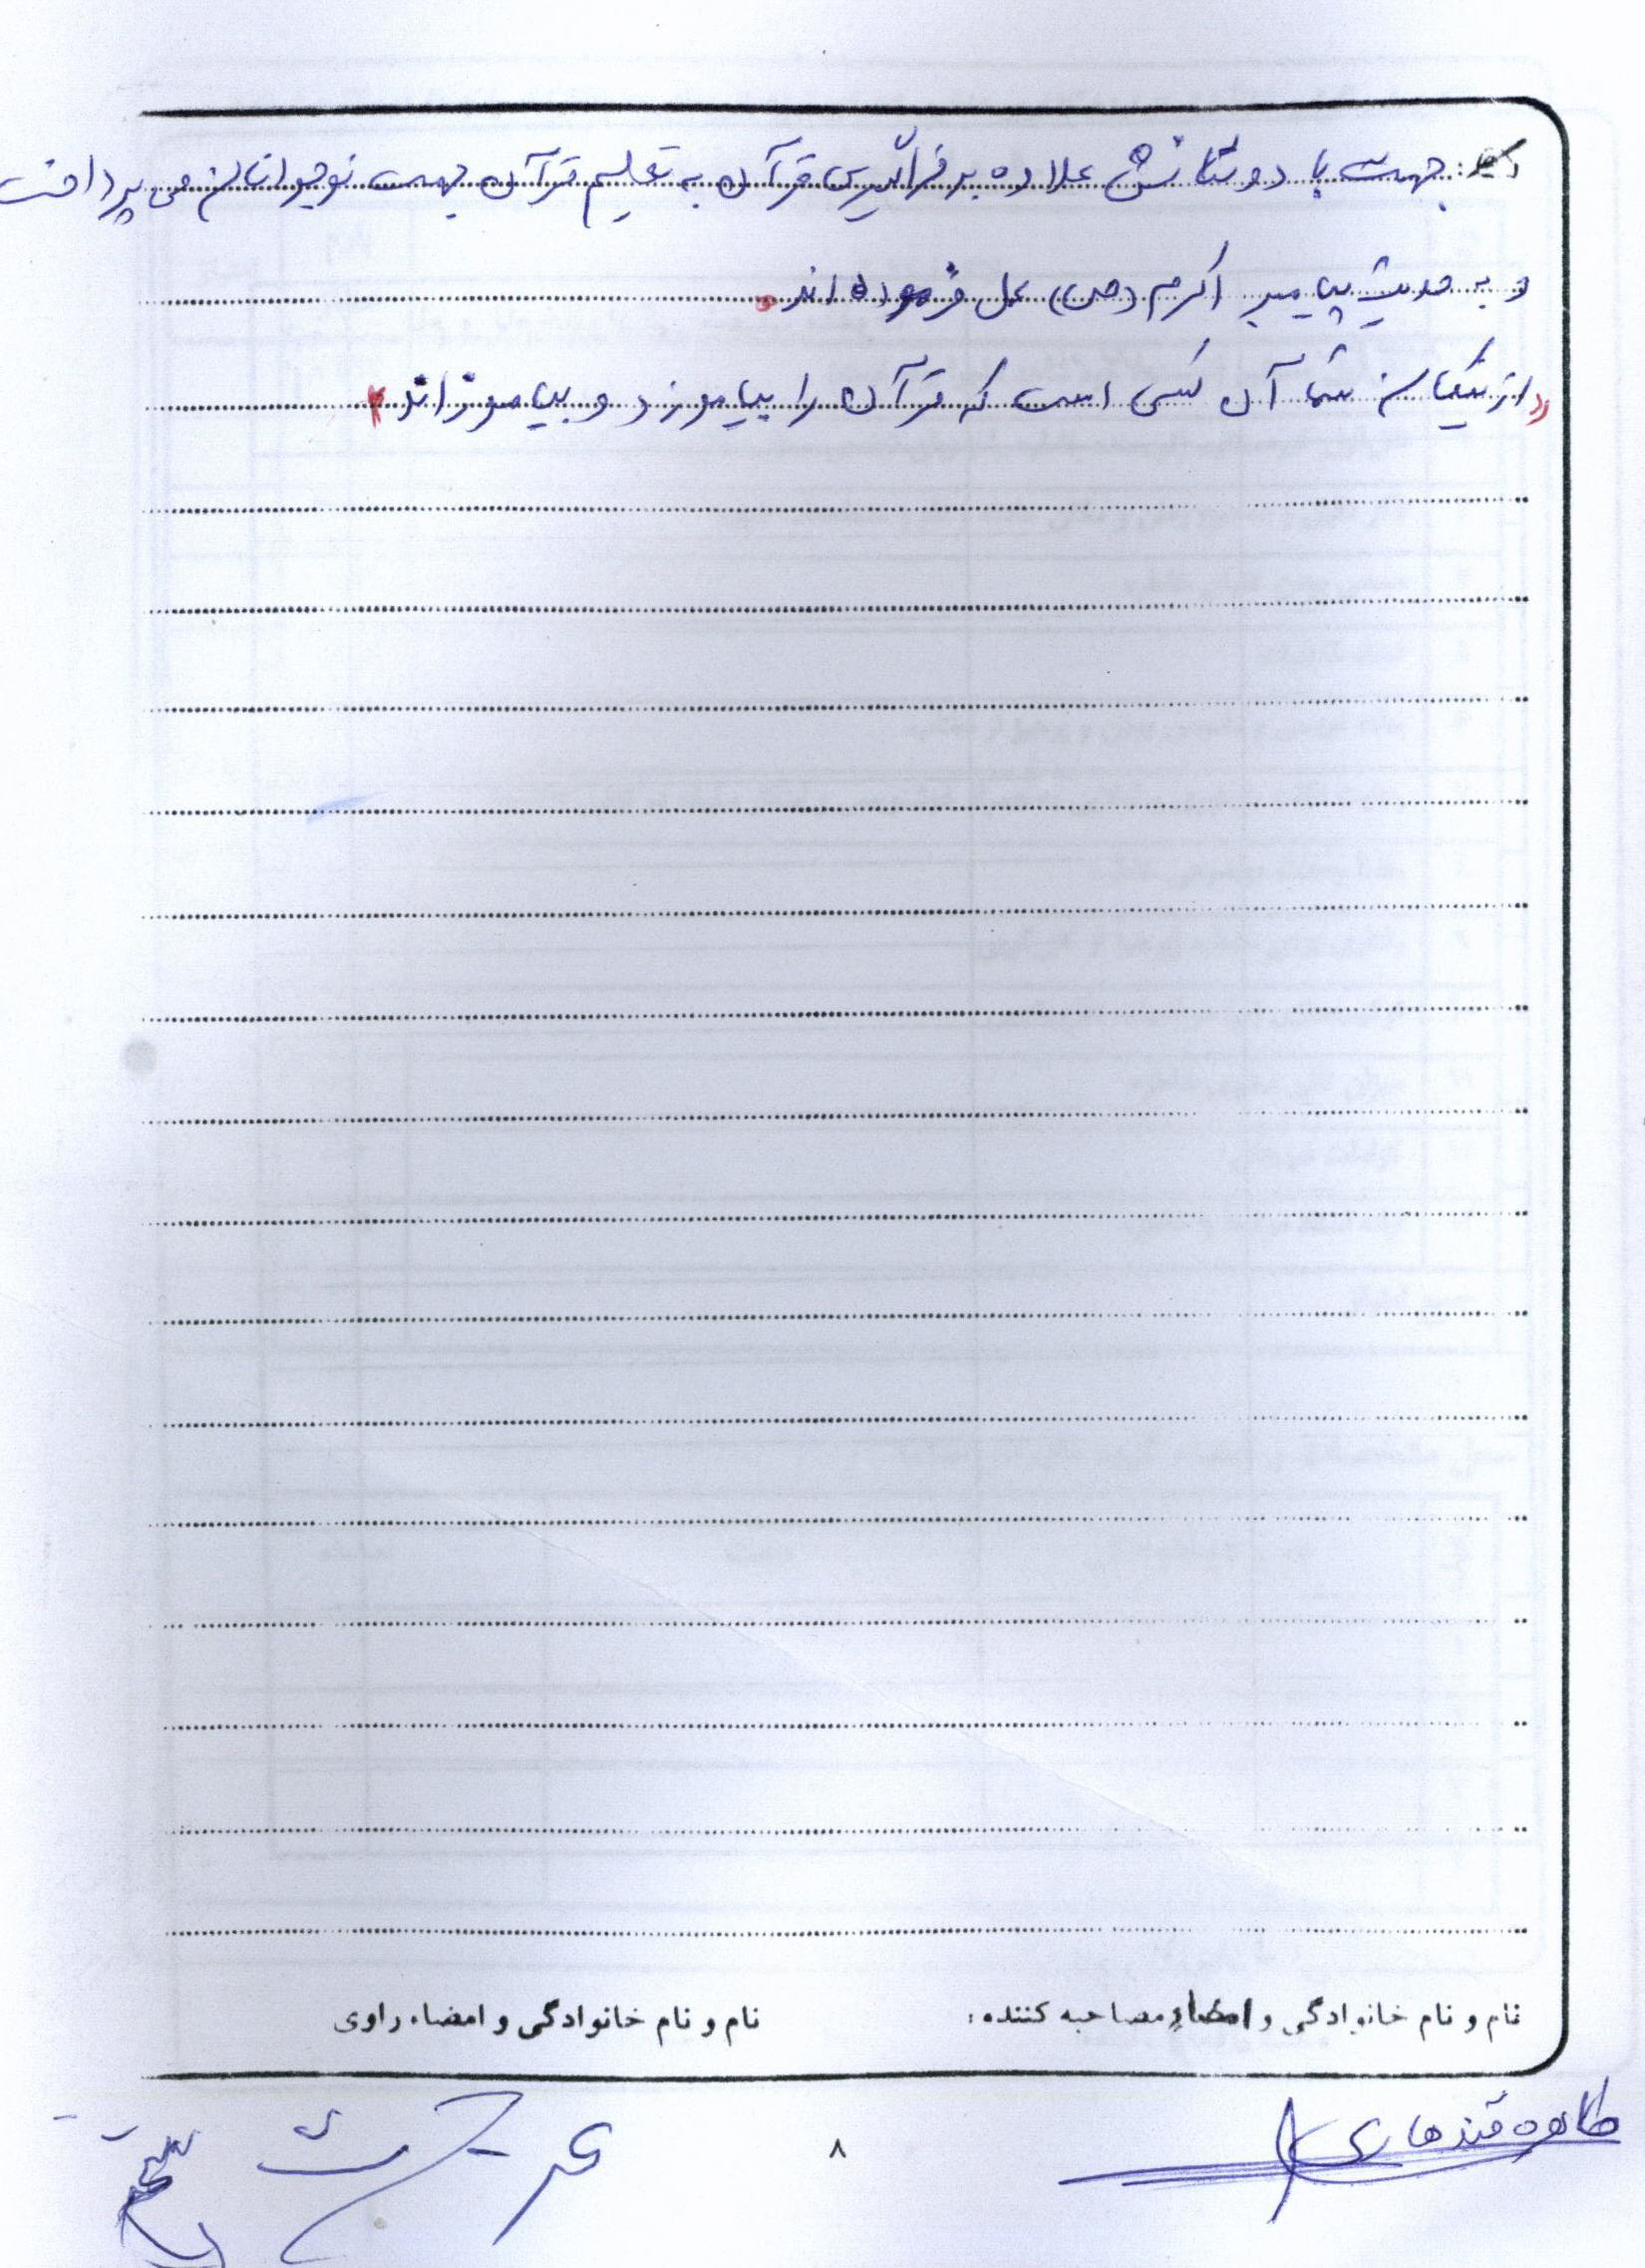 جهت با دوستانش علاوه بر فراگیری قرآن به تعلیم قرآن جهت نوجوانان می پرداخت
و به حدیث پیامبر اکرم (ص) عمل فرموده اند.
«از نیکان شما آن کسی است که قرآن را بیاموزد و بیاموزاند»
نام و نام خانوادگی و امضاء مصاحبه کننده:
نام و نام خانوادگی و امضاء راوی
طاهره قندهاری
۸